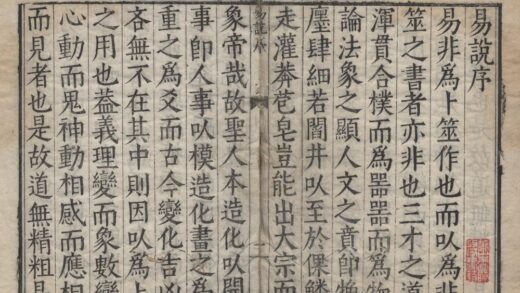 易說序
易非為卜筮作也而以為卜
筮之書者亦非也三才之道
渾貫合樸而為噐噐而為物
論法象之顯人文之賁卽物
廛肆細若閭井以至於倮鱗
走灌莽苞皂豈能出大宗而
易說序
象帝哉故聖人本造化以開
事卽人事以模造化畫之為
重之為爻而古今變化吉凶
吝無不在其中則因以為卜
之用也葢義理變而象數變
心動而鬼神動相感而應相
而見者也是故道無精粗見